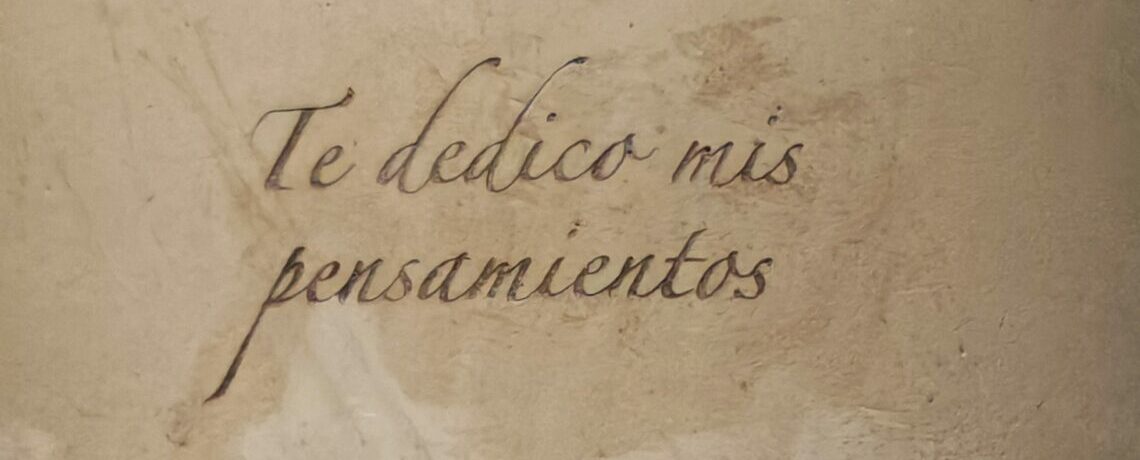 Te dedico mis
pensamientos